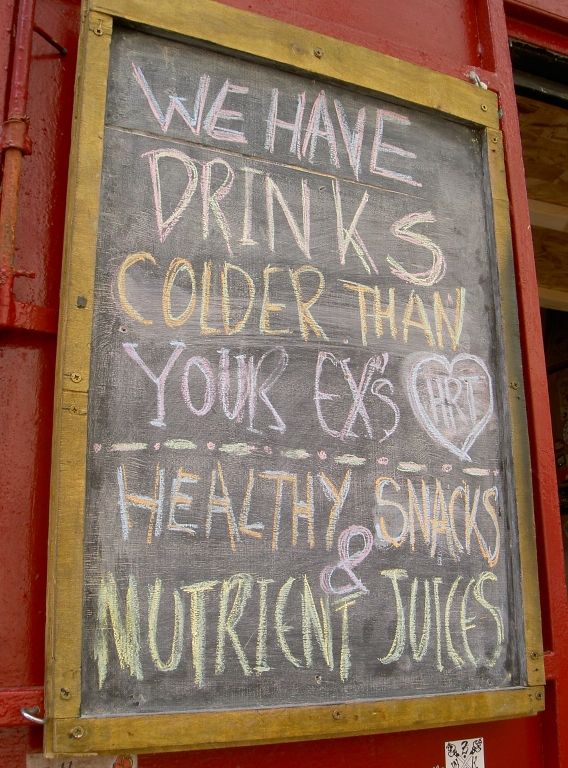 WE HAVE
DRINKS
COLDER THAN
YOUR EX'S HRT
HEALTHY SNACKS
&
NUTRIENT JUICES